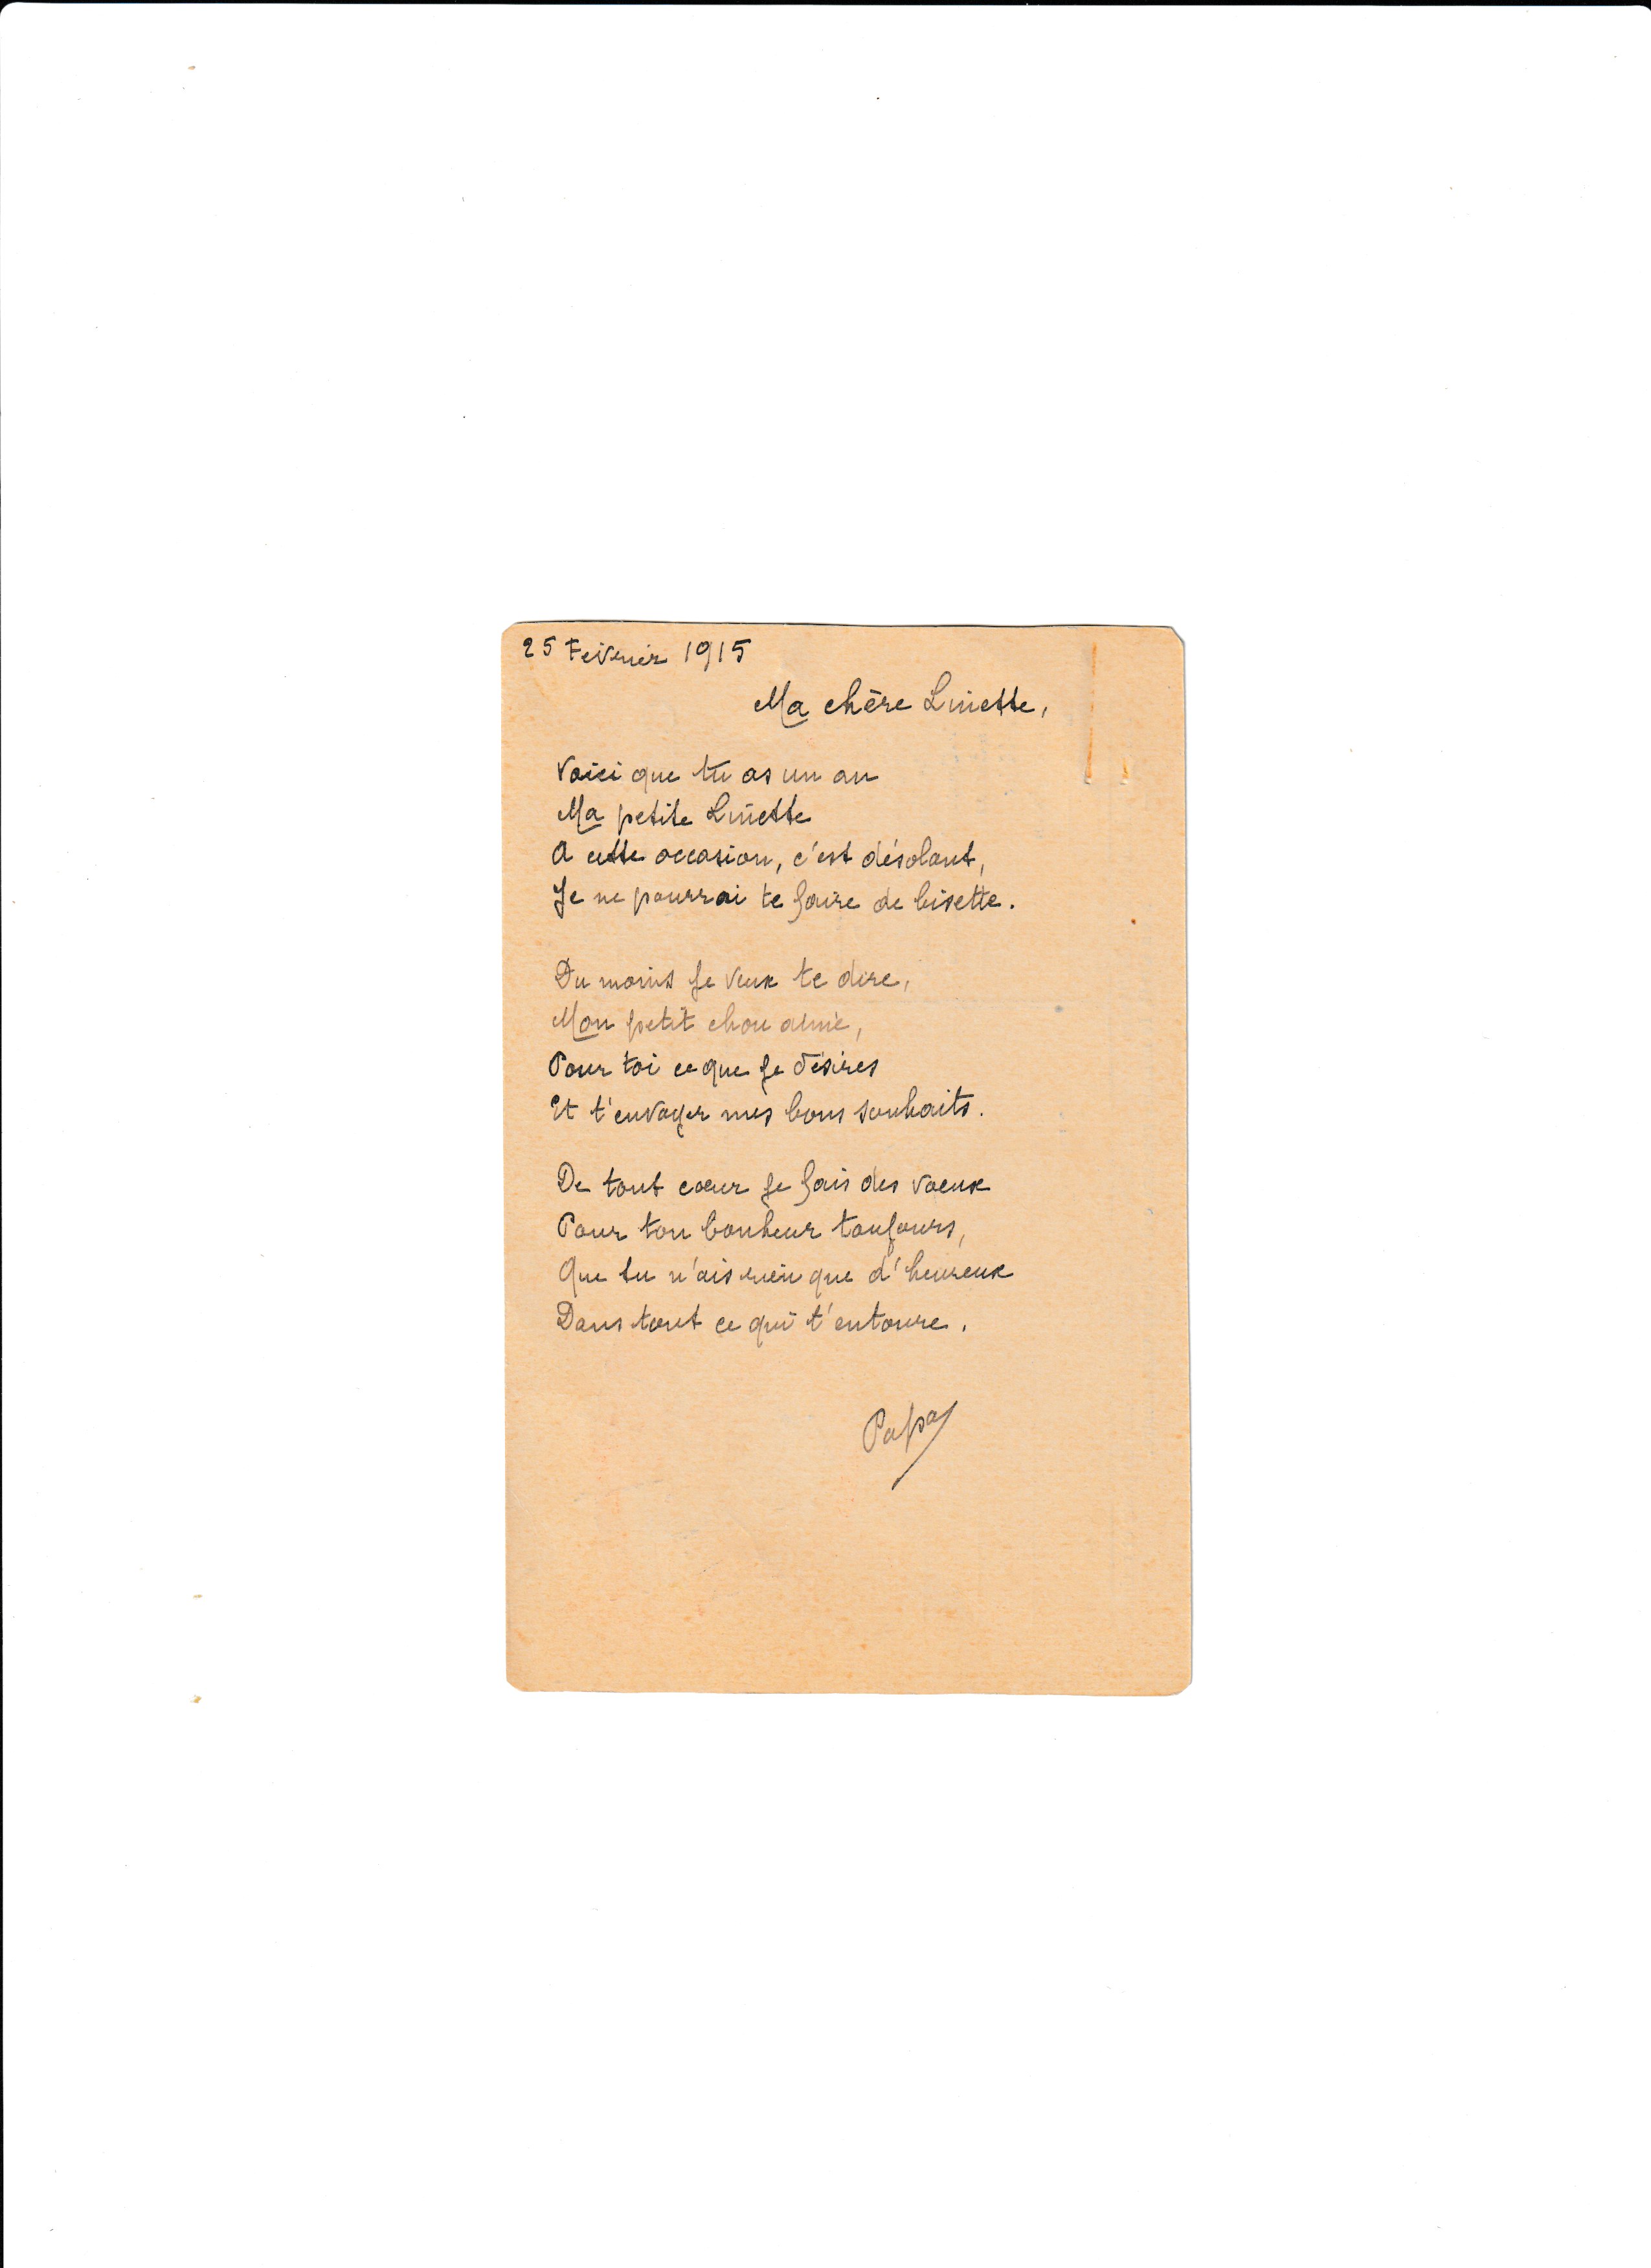 25 Février 1915
Ma chère Linette,
Voici que tu as un an
Ma petite Linette
A cette occasion, c'est désolant,
Je ne pourrai te faire de bisette.
Du moins je veux te dire,
Mon petit chou aimé,
Pour toi ce que je désires
Et t'envoyer mes bons souhaits.
De tout coeur je fais des voeux
Pour ton bonheur toujours,
Que tu n'ais rien que d'heureux
Dans tout ce qui t'entoure.
Papa